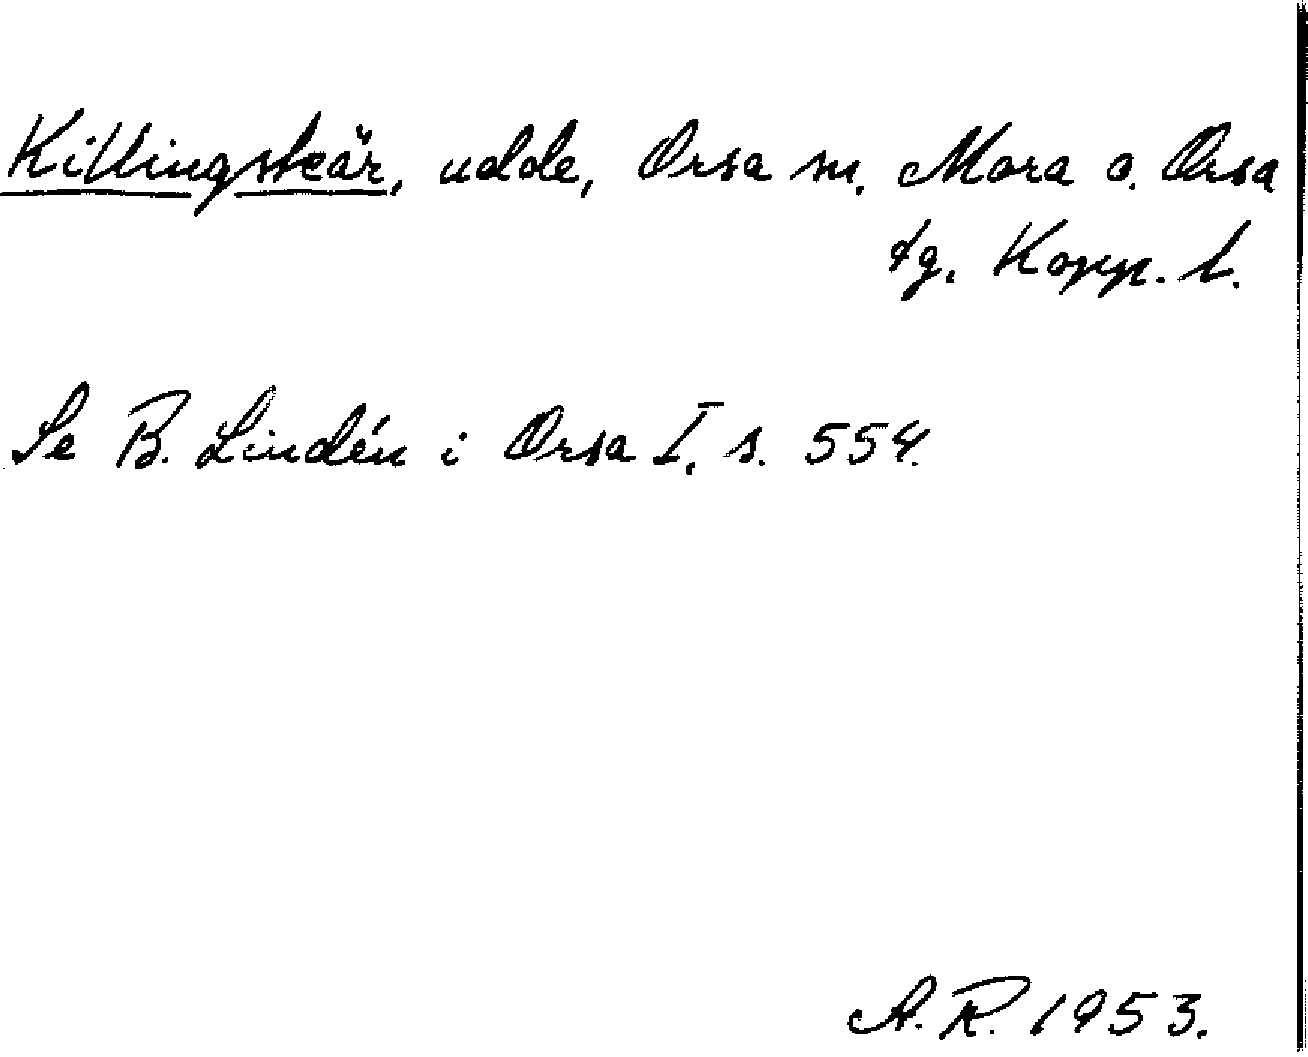 Killingskär, udde, Orsa sn. Mora o. Orsa
tg. Kopp. l.
Se B. Lindén i Orsa I, s. 554.
A. R. 1953.